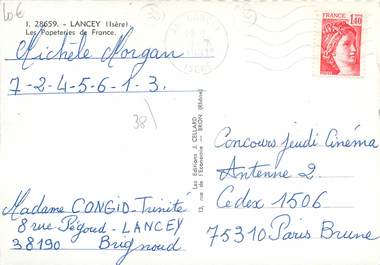 10€
1. 28659. - LANCEY (Isère)
Les Papeteries de France.
Michèle Morgan
7-2-4-5-6-1-3.
38
FRANCE
1,40
Les Editions J. CELLARD
13, rue de l'Economie — BRON (Rhône)
Concours Jeudi Cinéma
Antenne 2
Cedex 1506
75310 Paris Brune
Madame CONGID-Trinité
8 rue Pégoud - LANCEY
38190 Brignoud